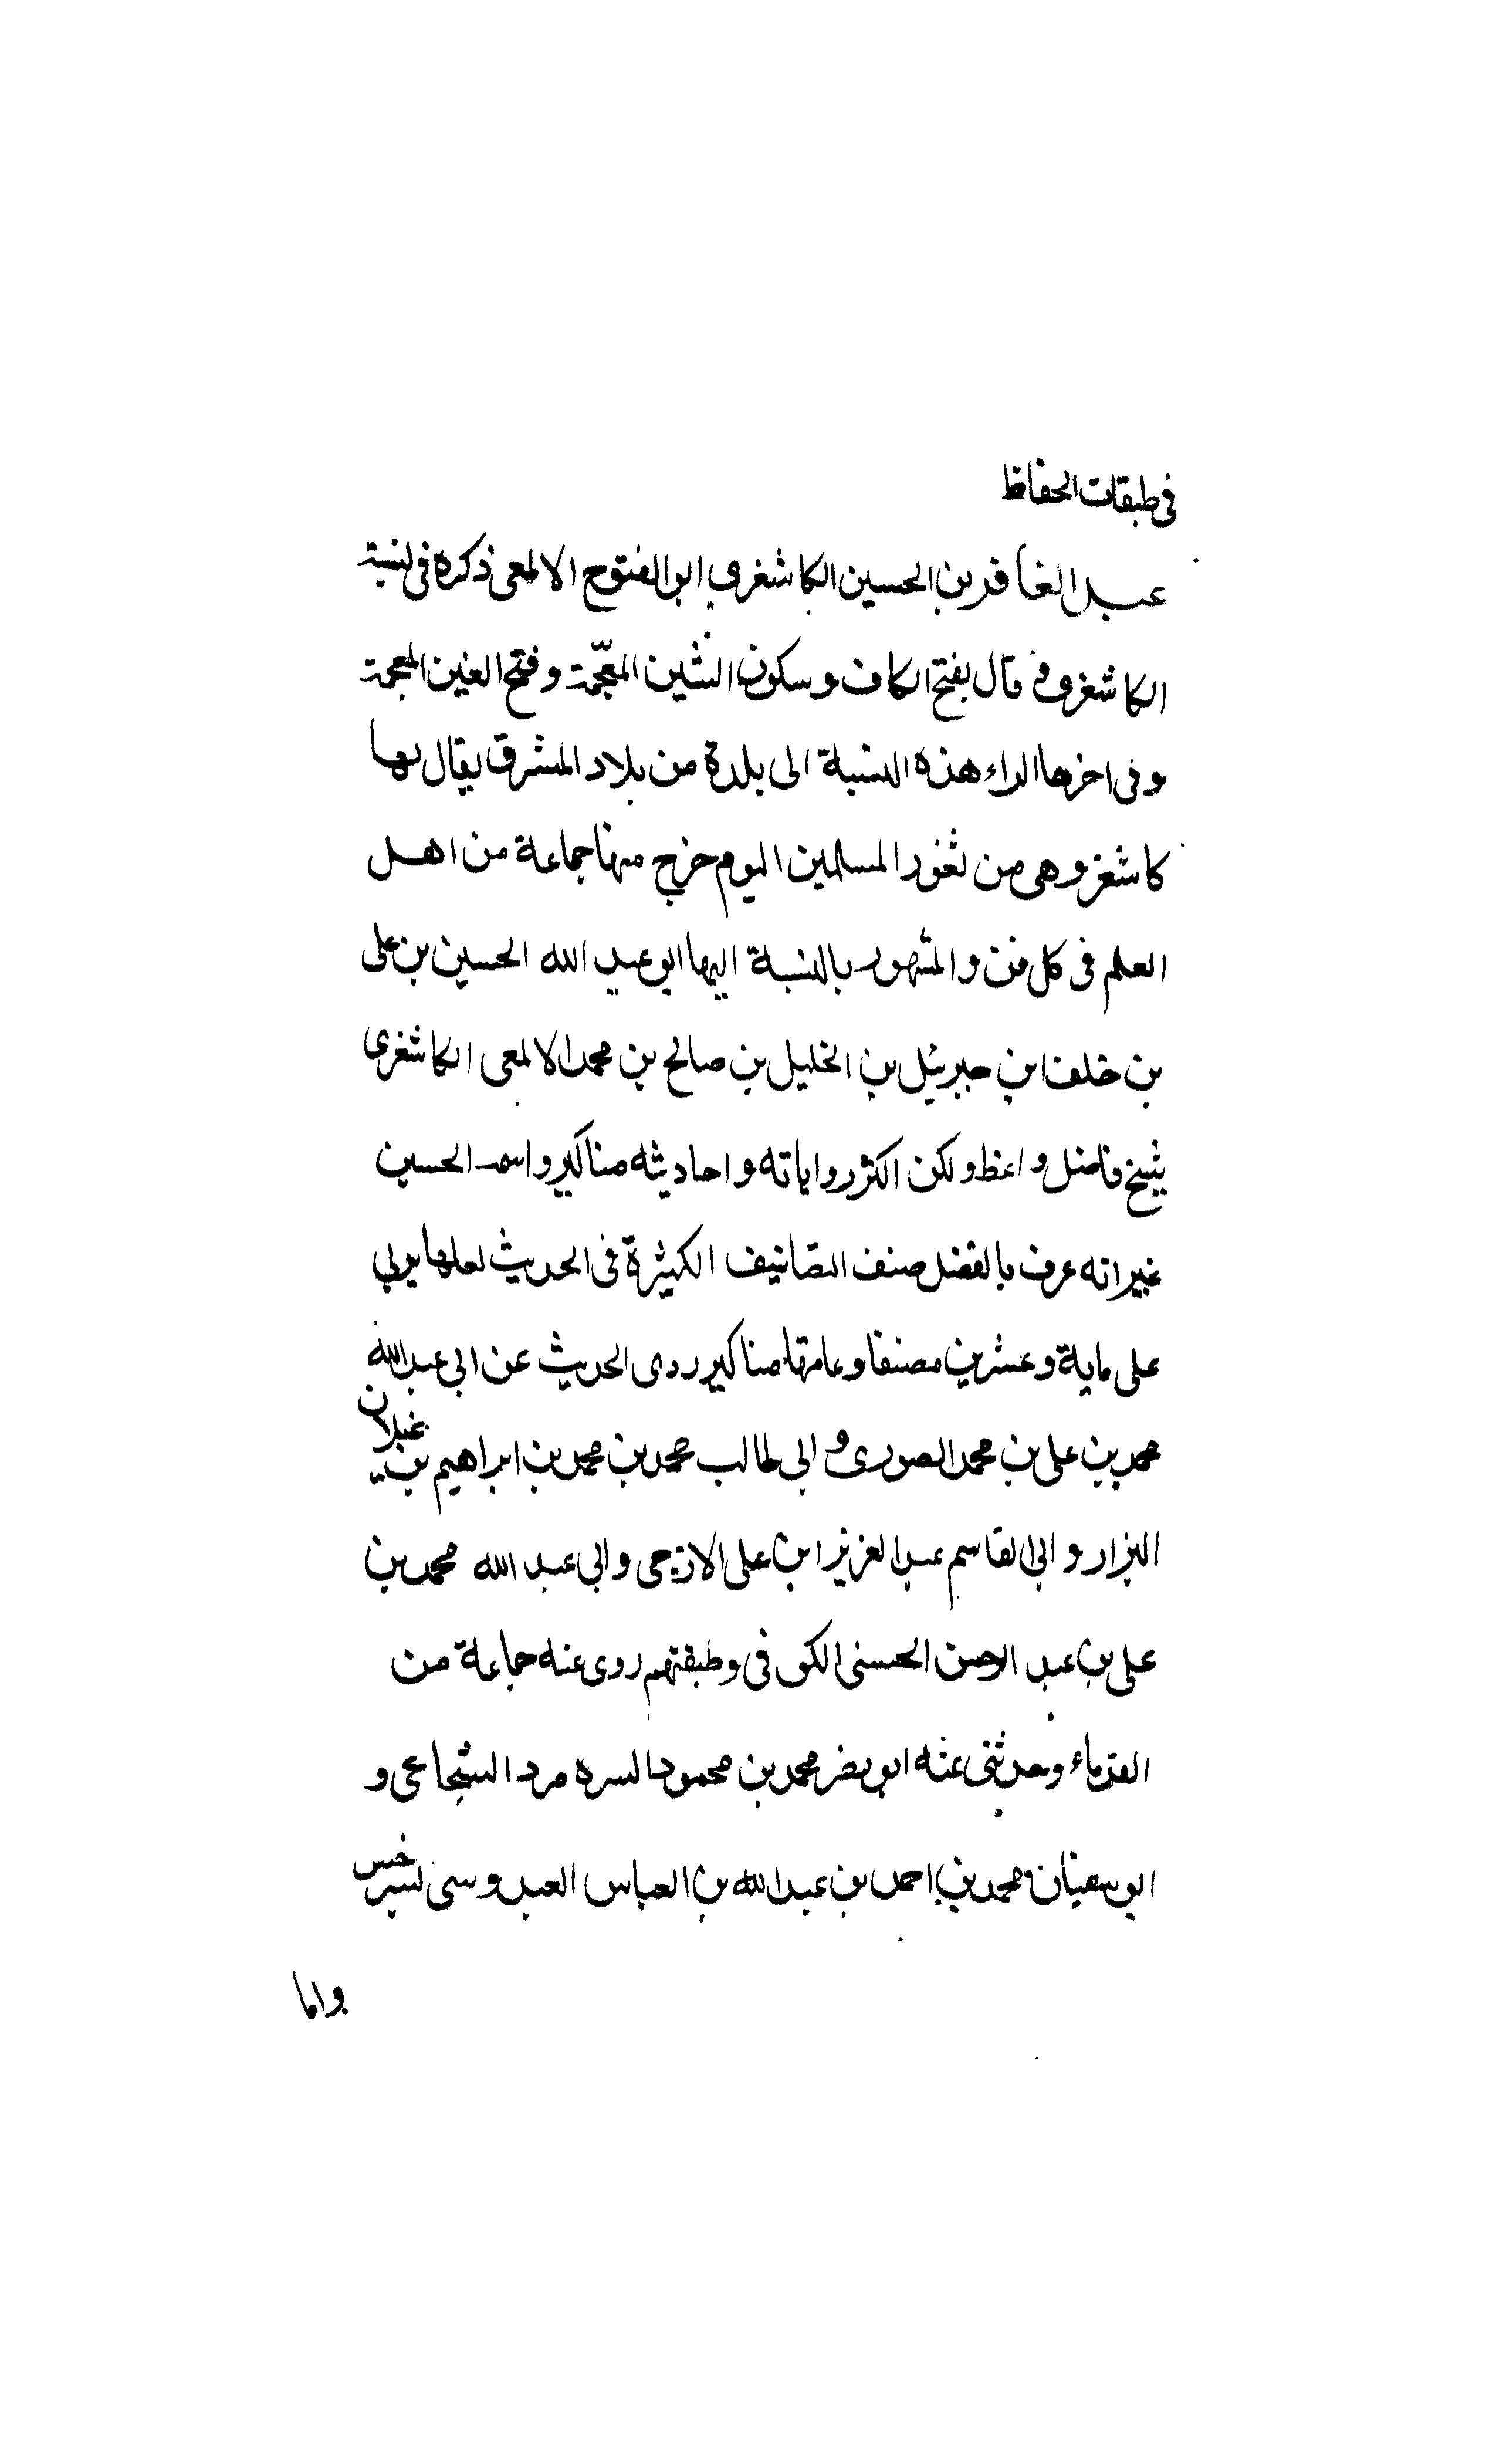 فى طبقات الحفاظ
عبد الغافر بن الحسين الكاشغرى ابو الفتوح الالمعى ذكره فى نسبة
الكاشغرى قال بفتح الكاف وسكون الشين المعجّمة وفتح الغين المعجمة
وفى اخرها الراء هذه النسبة الى بلدة من بلاد المشرق يقال لها
كاشغر وهى من ثغور المسلمين اليوم خرج منها جماعة من اهل
العلم فى كل فن والمشهور بالنسبة اليها ابو عبد الله الحسين بن على
بن خلف ابن جبرئيل بن الخليل بن صالح بن محمد الالمعى الكاشغرى
شيخ فاضل واعظ ولكن اكثر رواياته واحاديثه مناكير واسمه الحسين
غير انه عرف بالفضل صنف التصانيف الكثيرة فى الحديث لعلها يربى
على ماية وعشرين مصنفا وعامتها مناكير روى الحديث عن ابى عبد الله
محمد بن على بن محمد الصورى و ابى طالب محمد بن محمد بن ابراهيم بن غيلان
البزار و ابى القاسم عبد العزيز ابن على الازجى وابى عبد الله محمد بن
على بن عبد الرحمن الحسنى الكوفى وطبقتهم روى عنه جماعة من
القدماء وحدثنى عنه ابو نصر محمد بن محمود السره مرد الشجاعى و
ابو سفيان محمد بن احمد بن عبد الله بن العباس العبدوسى بسرخس
واما